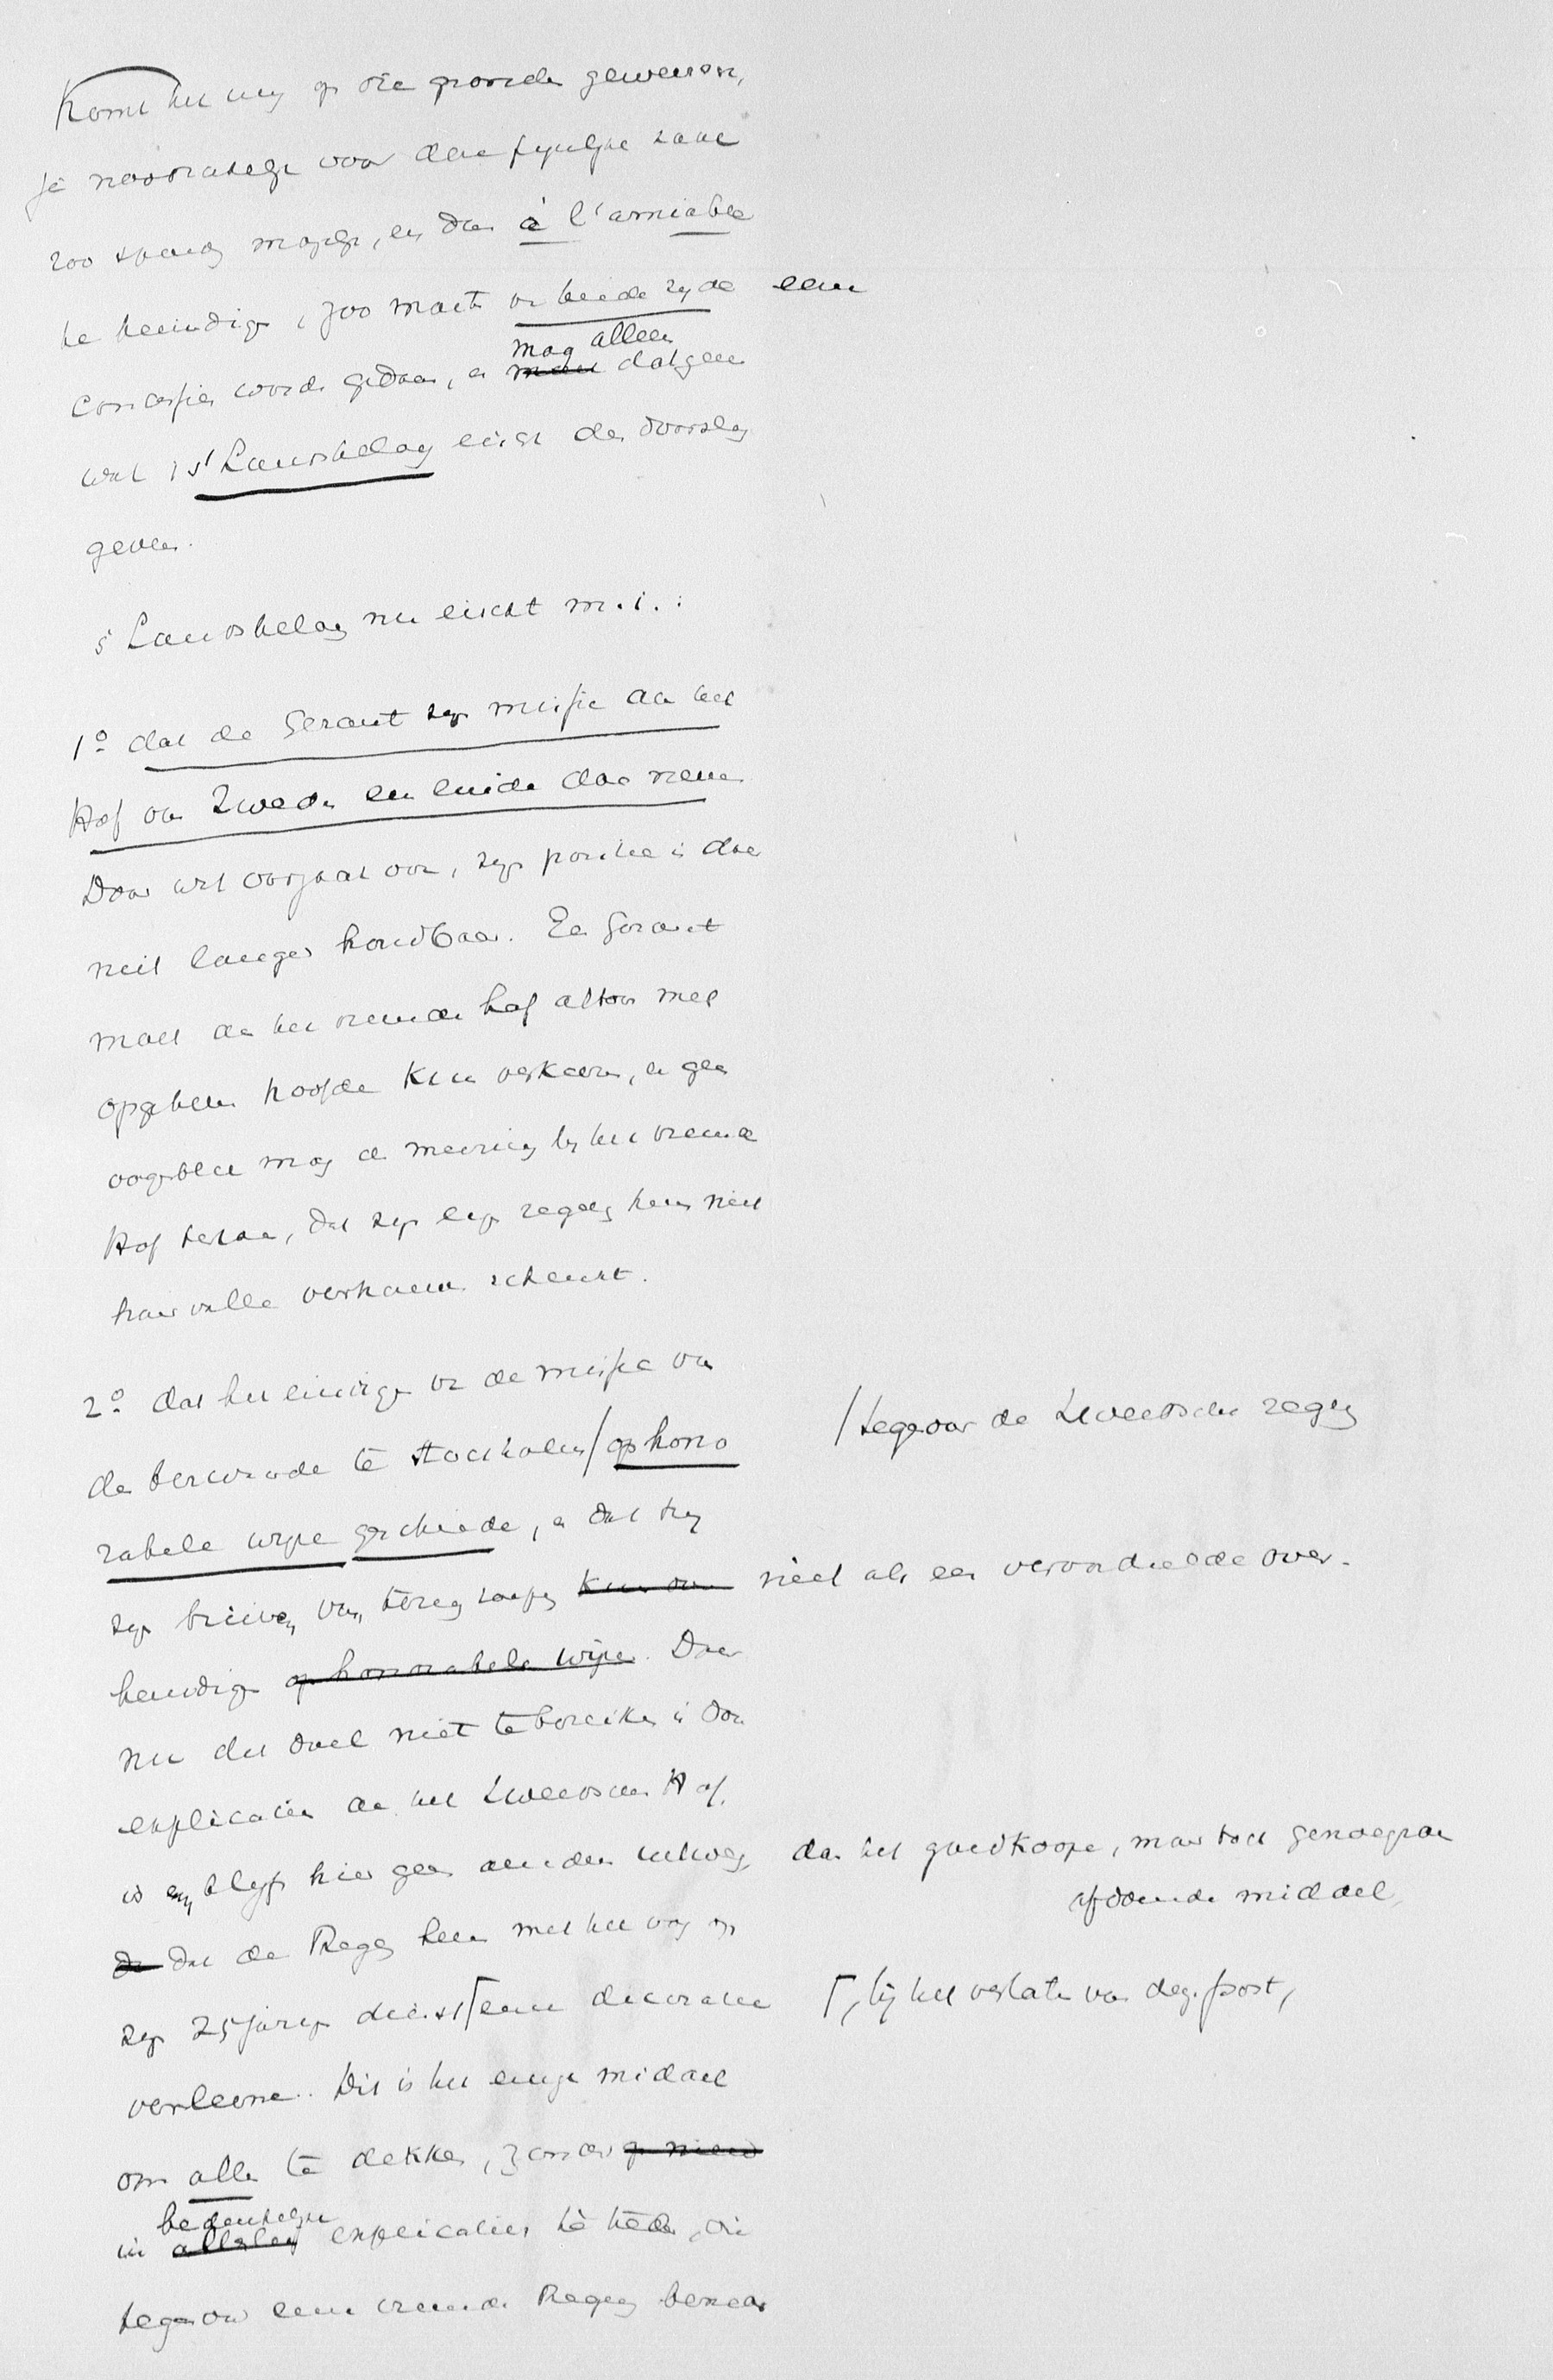 Komt het mij op die gronde gewenscht,
ja noodzakelijk voor deze pijnlijke zaak
zoo spoedig mogelijk, en dan à l'amiable
te beeindigen, zoo moete van beide zijde eene
concessie worde gedaan, en mag alleen datgeen
wat 's Landsbelang eischt den doorslag
geven.
's Landsbelang nu eischt m.i.:
1º dat de Gerant zijn missie aan het
Hof van Zweden een einde doe nemen
Door wat voorgevallen, zijn positie is daar
niet langer houdbaar. Een Gerant
moet aan het vreemde hof altoos met
opgeheven hoofde kunne verkeeren, en geen
oogenblik mag de meening bij het vreemde
Hof bestaan, dat zijn eigen regeering hem niet
haar volle vertrouwen schenkt.
2º dat het eindigen van de missie van
den betrokkende te Stockholm / op hono /tegenover de Zweedsche regeering
rabele wijze geschiede, en dat hij
zijn brieven van terugroeping niet als een veroordeelde over-
handige op honorabele wijze. Daar
nu dit doel niet te bereiken is door
explicatien aan het Zweedsche Hof,
is en blijft hier geen andere uitweg dan het goedkoope, maar toch genoegzaam
afdoende middel,
dat de Regeering hem met het oog op
zijn 25jarigen dienst ⌈ eene decoratie ⌈, bij het verlaten van dezen post,
verleene. Dit is het eenige middel
om alles te dekken, zonder op nieuw
in allerlei bedenkelijke explicaties te treden, die
tegenover eene vreemde Regeering beneden